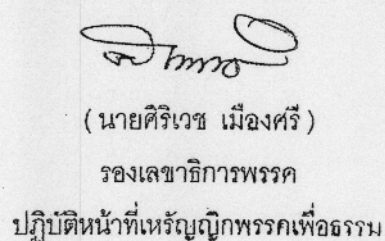 (นายศิริเวช เมืองศรี)
รองเลขาธิการพรรค
ปฏิบัติหน้าที่เหรัญญิกพรรคเพื่อธรรม